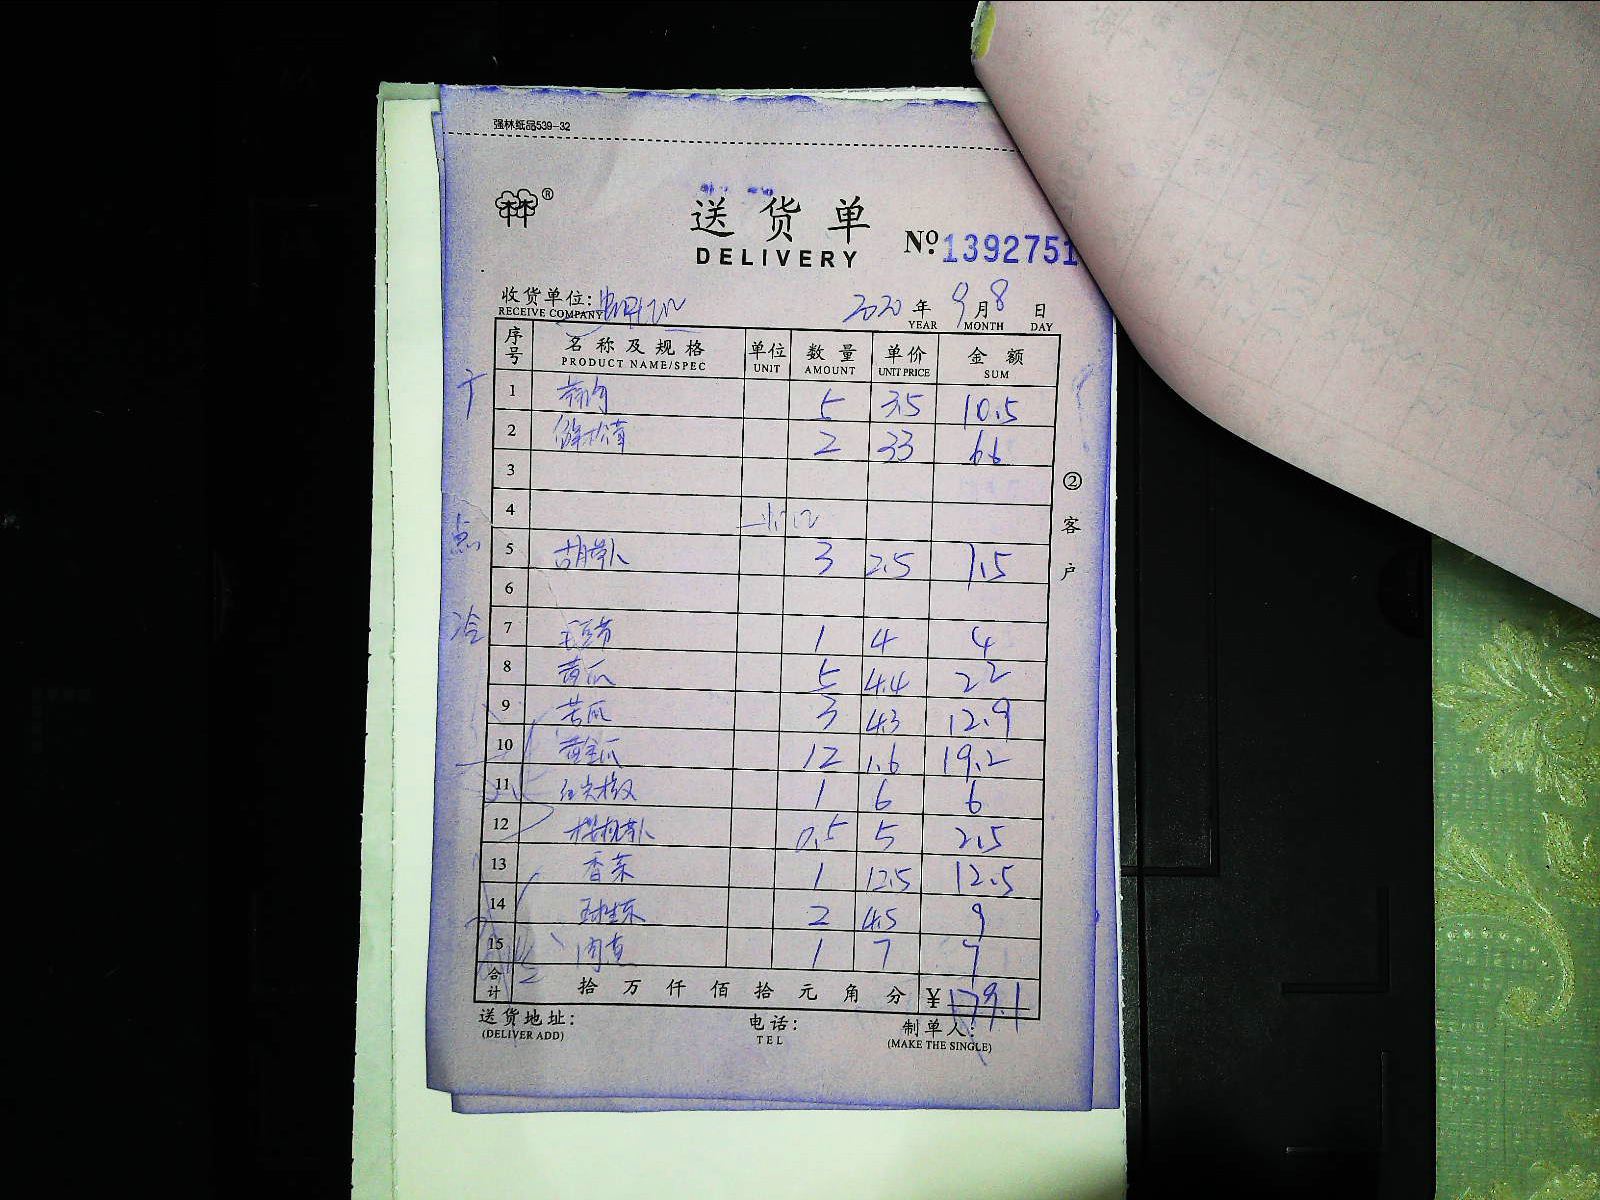 强林纸品539-32
林林®
送货单
DELIVERY
No. 1392751
收货单位:
RECEIVE COMPANY
2020年9月8日
YEAR MONTH DAY
序号 名称及规格 单位 数量 单价 金额
PRODUCT NAME/SPEC UNIT AMOUNT UNIT PRICE SUM
1 5 3.5 10.5
2 鲜松茸 2 33 66
3
4
点
5 胡萝卜 3 2.5 7.5
6
冷
7 毛豆节 1 4 4
8 黄瓜 5 4.4 22
9 苦瓜 3 4.3 12.9
10 黄金瓜 12 1.6 19.2
11 红尖椒 1 6 6
12 樱桃萝卜 0.5 5 2.5
13 香菜 1 12.5 12.5
14 球生菜 2 4.5 9
15 1 7 7
合计 拾万仟佰拾元角分 ¥179.1
送货地址:
(DELIVER ADD)
电话:
TEL
制单人:
(MAKE THE SINGLE)
②客户